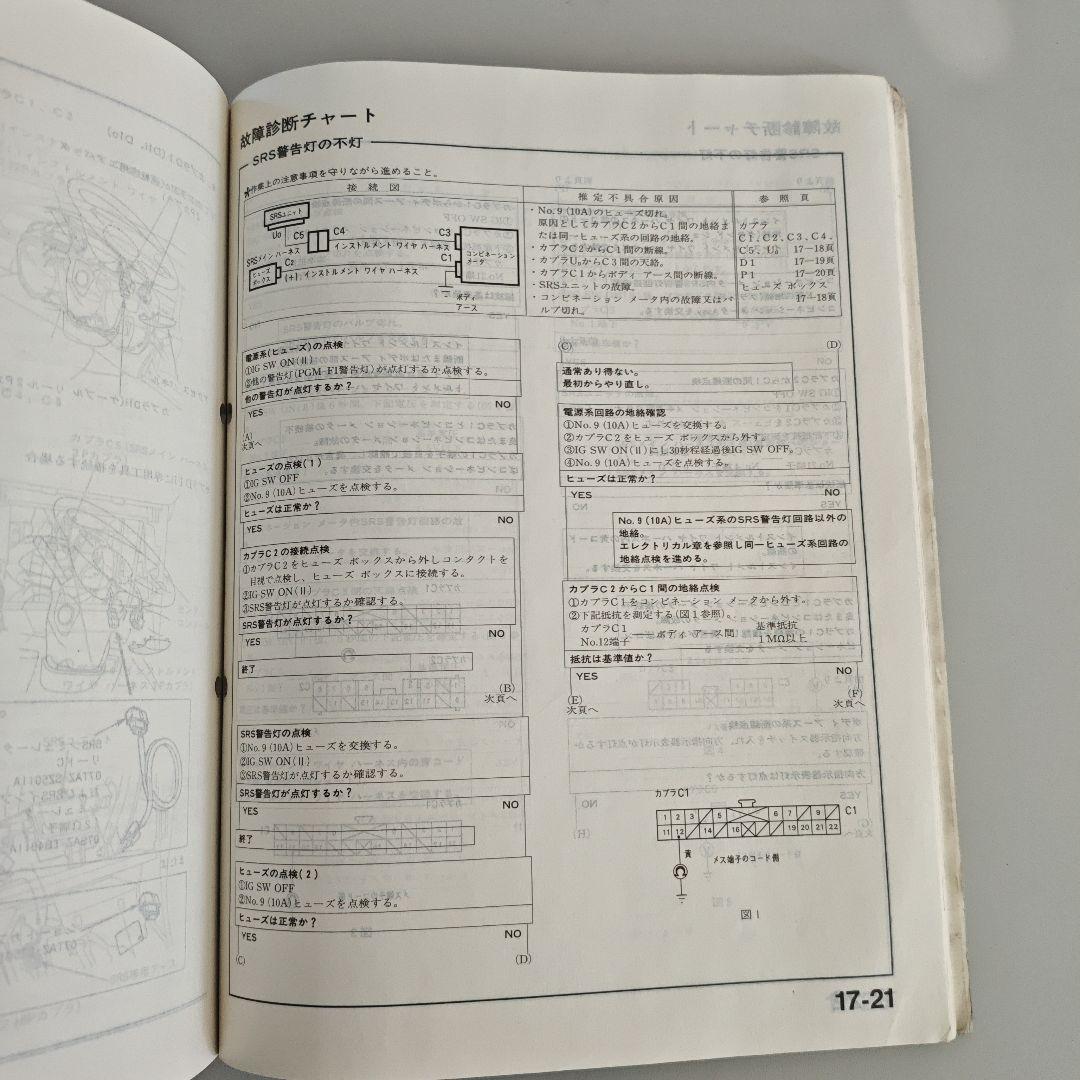 故障診断チャート
SRS警告灯の不灯
★作業上の注意事項を守りながら進めること。
接続図
推定不具合原因
参照頁
SRSユニット
U₀
C5
C4
C3
SRSメイン ハーネス
インストルメント ワイヤ ハーネス
C2
C1
ヒューズ
ボックス
(+)
インストルメント ワイヤ ハーネス
コンビネーション
メータ
ボディ
アース
・No.9 (10A)のヒューズ切れ。
原因としてカプラC2からC1間の地絡ま
たは同一ヒューズ系の回路の地絡。
・カプラC2からC1間の断線。
・カプラU₀からC3間の天絡。
・カプラC1からボディ アース間の断線。
・SRSユニットの故障。
・コンビネーション メータ内の故障又はバ
ルブ切れ。
カプラ
C1、C2、C3、C4、
C5、U₀ 17―18頁
D1 17―19頁
P1 17―20頁
ヒューズ ボックス
17―18頁
電源系(ヒューズ)の点検
①IG SW ON(II)
②他の警告灯(PGM-FI警告灯)が点灯するか点検する。
他の警告灯が点灯するか？
YES
NO
(A)
次頁へ
ヒューズの点検(1)
①IG SW OFF
②No.9 (10A)ヒューズを点検する。
ヒューズは正常か？
YES
NO
カプラC2の接続点検
①カプラC2をヒューズ ボックスから外しコンタクトを
目視で点検し、ヒューズ ボックスに接続する。
②IG SW ON(II)
③SRS警告灯が点灯するか確認する。
SRS警告灯が点灯するか？
YES
NO
終了
(B)
次頁へ
SRS警告灯の点検
①No.9 (10A)ヒューズを交換する。
②IG SW ON(II)
③SRS警告灯が点灯するか確認する。
SRS警告灯が点灯するか？
YES
NO
終了
ヒューズの点検(2)
①IG SW OFF
②No.9 (10A)ヒューズを点検する。
ヒューズは正常か？
YES
NO
(C)
(D)
(C)
(D)
通常あり得ない。
最初からやり直し。
電源系回路の地絡確認
①No.9 (10A)ヒューズを交換する。
②カプラC2をヒューズ ボックスから外す。
③IG SW ON(II)にし30秒程経過後IG SW OFF。
④No.9 (10A)ヒューズを点検する。
ヒューズは正常か？
YES
NO
No.9 (10A)ヒューズ系のSRS警告灯回路以外の
地絡。
エレクトリカル章を参照し同一ヒューズ系回路の
地絡点検を進める。
カプラC2からC1間の地絡点検
①カプラC1をコンビネーション メータから外す。
②下記抵抗を測定する(図1参照)。
カプラC1
No.12端子
―ボディ アース間
基準抵抗
1MΩ以上
抵抗は基準値か？
YES
NO
(E)
次頁へ
(F)
次頁へ
カプラC1
1 2 3 5 6 7 9
C1
11 12 14 16 19 20 21 22
黄
メス端子のコード側
図1
17-21